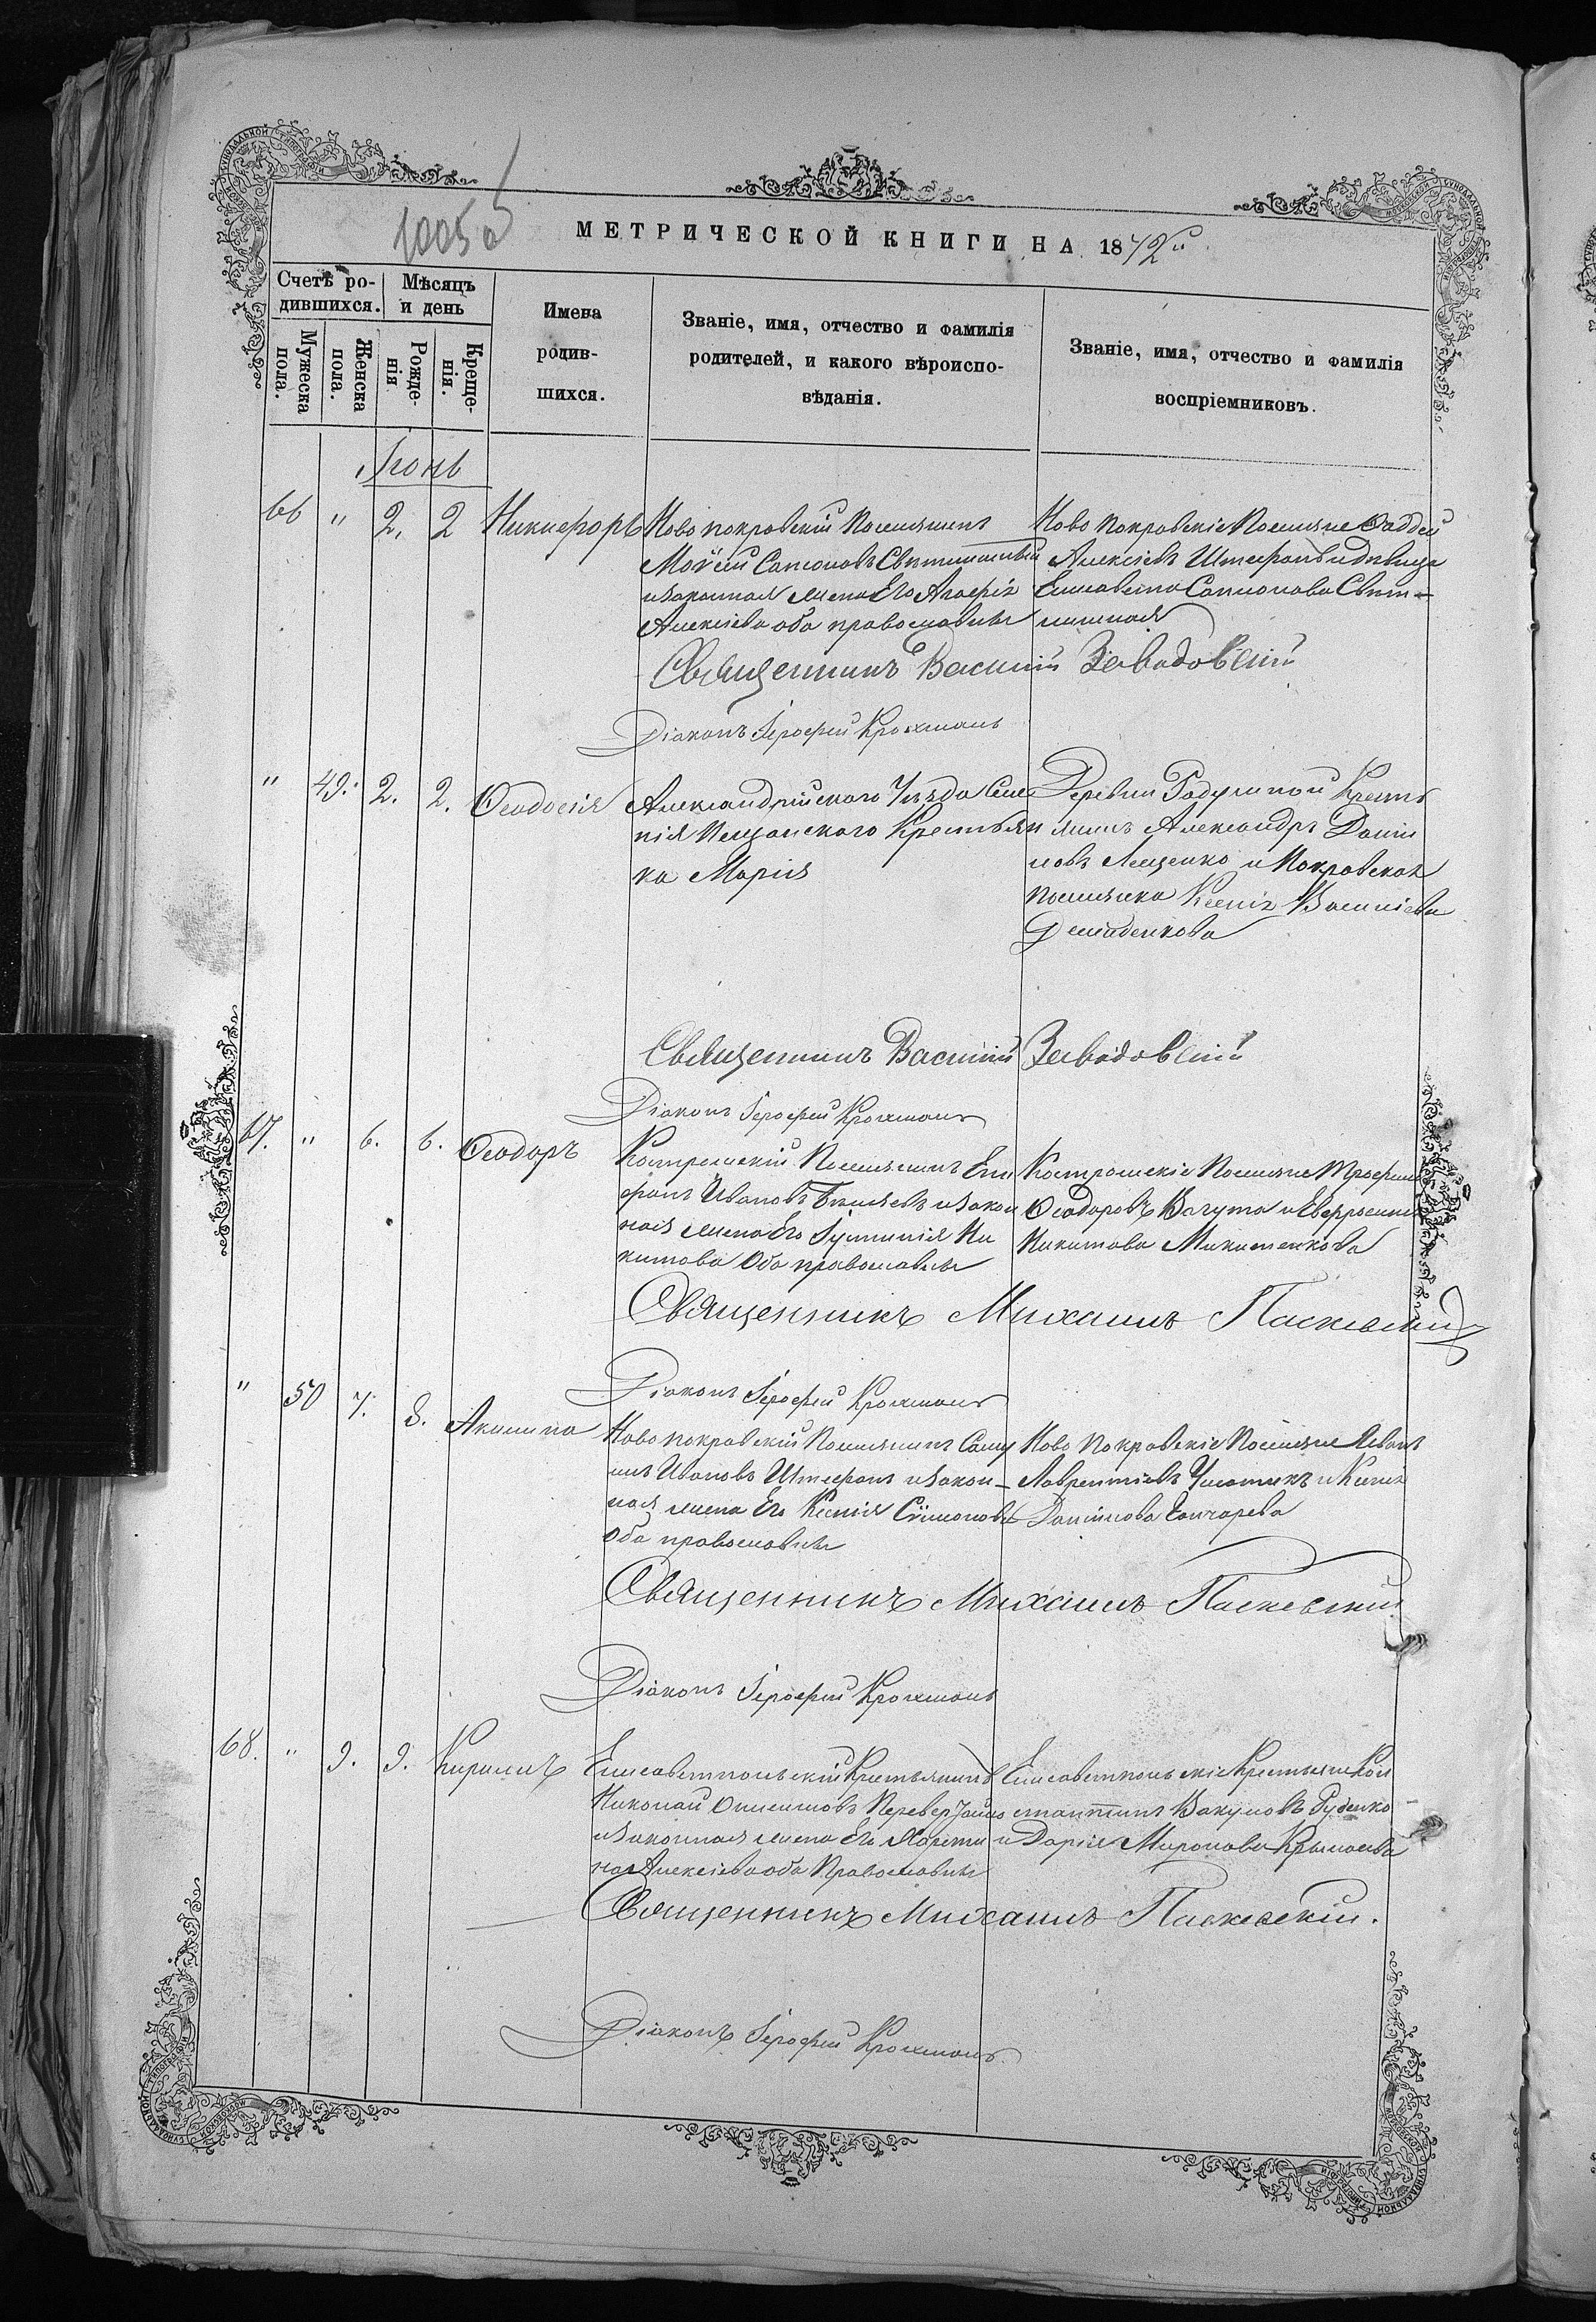 1005 об
МЕТРИЧЕСКОЙ КНИГИ НА 1872й
Счетъ ро-
дившихся.
Мѣсяцъ
и день
Мужеска
пола.
Женска
пола.
Рожде-
нія
Креще-
нія.
Имена
родив-
шихся.
Званіе, имя, отчество и фамилія
родителей, и какого вѣроиспо-
вѣданія.
Званіе, имя, отчество и фамилія
воспріемниковъ.
Іюнь
66 " 2. 2 Никифоръ
Ново покровскій Поселянинъ
Моѵсей Сампсоновъ
и законная жена Его Агафія
Алексіева оба православны
Ново Покровскіе Поселяне Фаддей
Алексіевъ Штефанъ и дѣвица
Елисавета Сампсонова Свѣт-
личная
Священникъ Василій Завадовскій
Діаконъ Іероѳей Крохмаль
" 49. 2. 2. Ѳеодосія
Александрійскаго Уѣзда Селе
нія Пещанского Крестьян
ка Марія
Деревни Радушной Кресть
янинъ Александръ Даніи
ловъ Лещенко и Покровская
поселянка Ксенія Василіева
Демиденкова
Священникъ Василій Завадовскій
Діаконъ Іероѳей Крохмаль
67. " 6. 6. Ѳеодоръ
Костромскій Поселянинъ Епи
фанъ Ивановъ и закон
ная жена Его Іустинія Ни
китова Оба православны
Костромскіе Поселяне Трофимъ
Ѳеодоровъ Вагута и Евфросинія
Никитова Микитенкова
Священникъ Михаилъ Паскевскій
Діаконъ Іероѳей Крохмаль
" 50 7. 8. Акилина
Ново покровскій Поселянинъ Саму
илъ Ивановъ Штефанъ и закон-
ная жена Его Ксенія Сѵмонова
Оба православны
Ново Покровскіе Поселяне Иванъ
Лаврентіевъ и Ксенія
Даніилова Гончарева
Священникъ Михаилъ Паскевскій
Діаконъ Іероѳей Крохмаль
68. " 9. 9. Кириллъ
Елисаветпольскій Крестьянинъ
Николай Онисимовъ Перевер
и законная жена Его Харети
на Алексіева оба Православны
Елисаветпольскіе Крестьяне Кон
стантинъ Вакуловъ Руденко
и Дарія Миронова
Священникъ Михаилъ Паскевскій.
Діаконъ Іероѳей Крохмаль